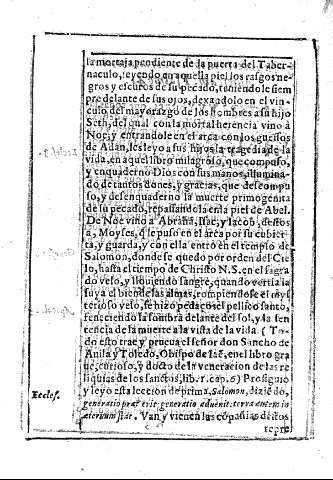 la mortaja pendiente de la puerta del Taber-
naculo, leyendo en aquella piel los rasgos ne-
gros y escuros de su pecado, teniendole siem
pre delante de sus ojos, dexandolo en el vin-
culo del mayorazgo de los hombres a su hijo
Seth, del qual con la mortal herencia vino à
Noe; y entrandole en el arca con los guessos
de Adan, les leyo a sus hijos la tragedia de la
vida, en aquel libro milagroso, que compuso,
y enquaderno Dios con sus manos, illumina-
do de tantos dones, y gracias, que descompu
so, y desenquaderno la muerte primogenita
de su pecado, repasandola en la piel de Abel.
De Noe vino a Abrahã, Isac, y Iacob, destos
a, Moyses, q̃ le puso en el arca por su cubier
ta, y guarda, y con ella entrò en el templo de
Salomon, donde se quedo por orden del Cie
lo, hasta el tiempo de Christo N.S. en el sagra
do velo, y lloviendo sangre, quando vertia la
suya el bien de las almas, rompiendose el mys
terioso velo, se hizo pedaços el pellico santo,
feneciendo la sombra delante del sol, y la sen
tencia de la muerte a la vista de la vida. (To-
do esto trae y prueua el señor don Sancho de
Auila y Toledo, Obispo de Iaẽ, en el libro gra
ue, curioso, y docto de la veneracion de las re
liquias de los santos, lib. 1. cap. 6) Prosiguio
y leyo esta leccion de prima, Salomon, diziẽdo,
Eccles.
generatio præterit generatio aduenit. terra autem in
æternum stat. Van y vienen las cõpañias destos
repre